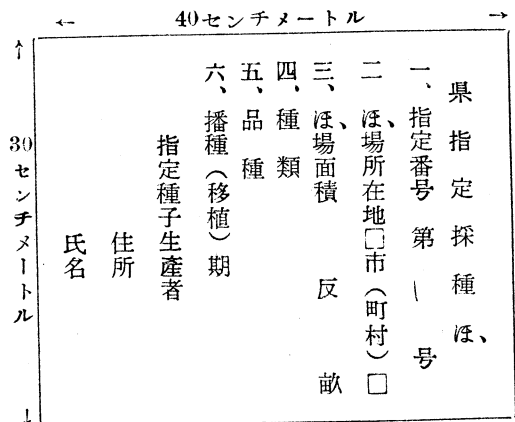 40センチメートル
30センチメートル
県指定採種ほ、
一、指定番号 第 | 号
二 ほ、場所在地□市(町村)□
三、ほ、場面積 反 畝
四、種類
五、品種
六、播種(移植)期
指定種子生産者
住所
氏名